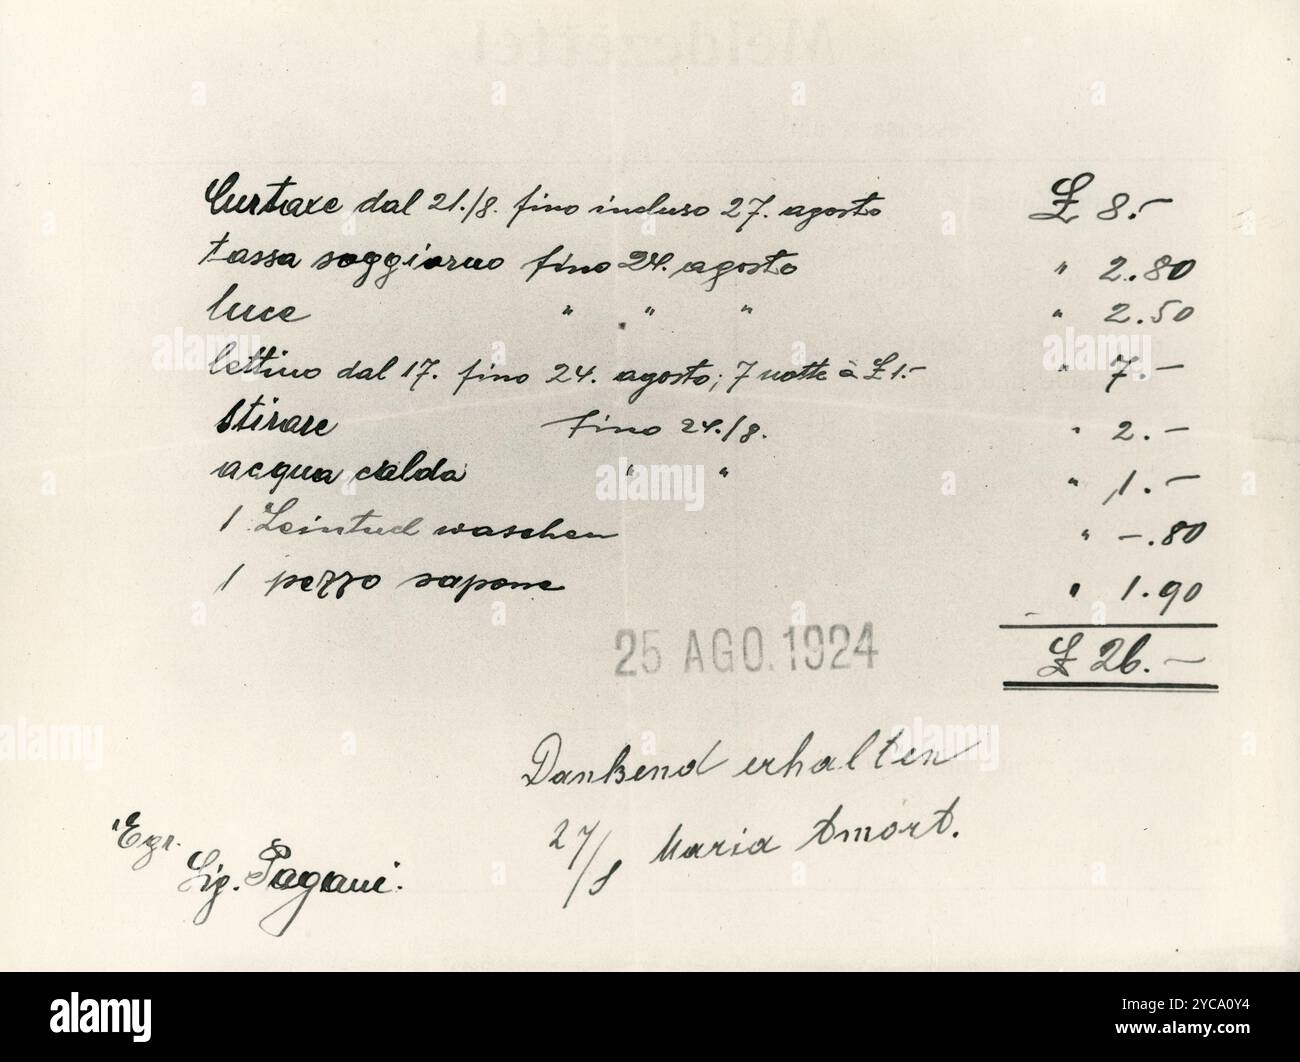 Meldezettel
Curtaxe dal 21./8. fino incluso 27. agosto £ 8.-
tassa soggiorno fino 24. agosto " 2.80
luce " " " " 2.50
lettino dal 17. fino 24. agosto; 7 notte à £ 1.- " 7.-
Stirare fino 24./8. " 2.-
acqua calda " " " 1.-
1 Leintuch waschen " -.80
1 pezzo sapone " 1.90
25 AGO. 1924 £ 26.-
Dankend erhalten
27/8 Maria Amort.
Egr.
Sig. Pagani.
alamy
Image ID: 2YCA0Y4
www.alamy.com